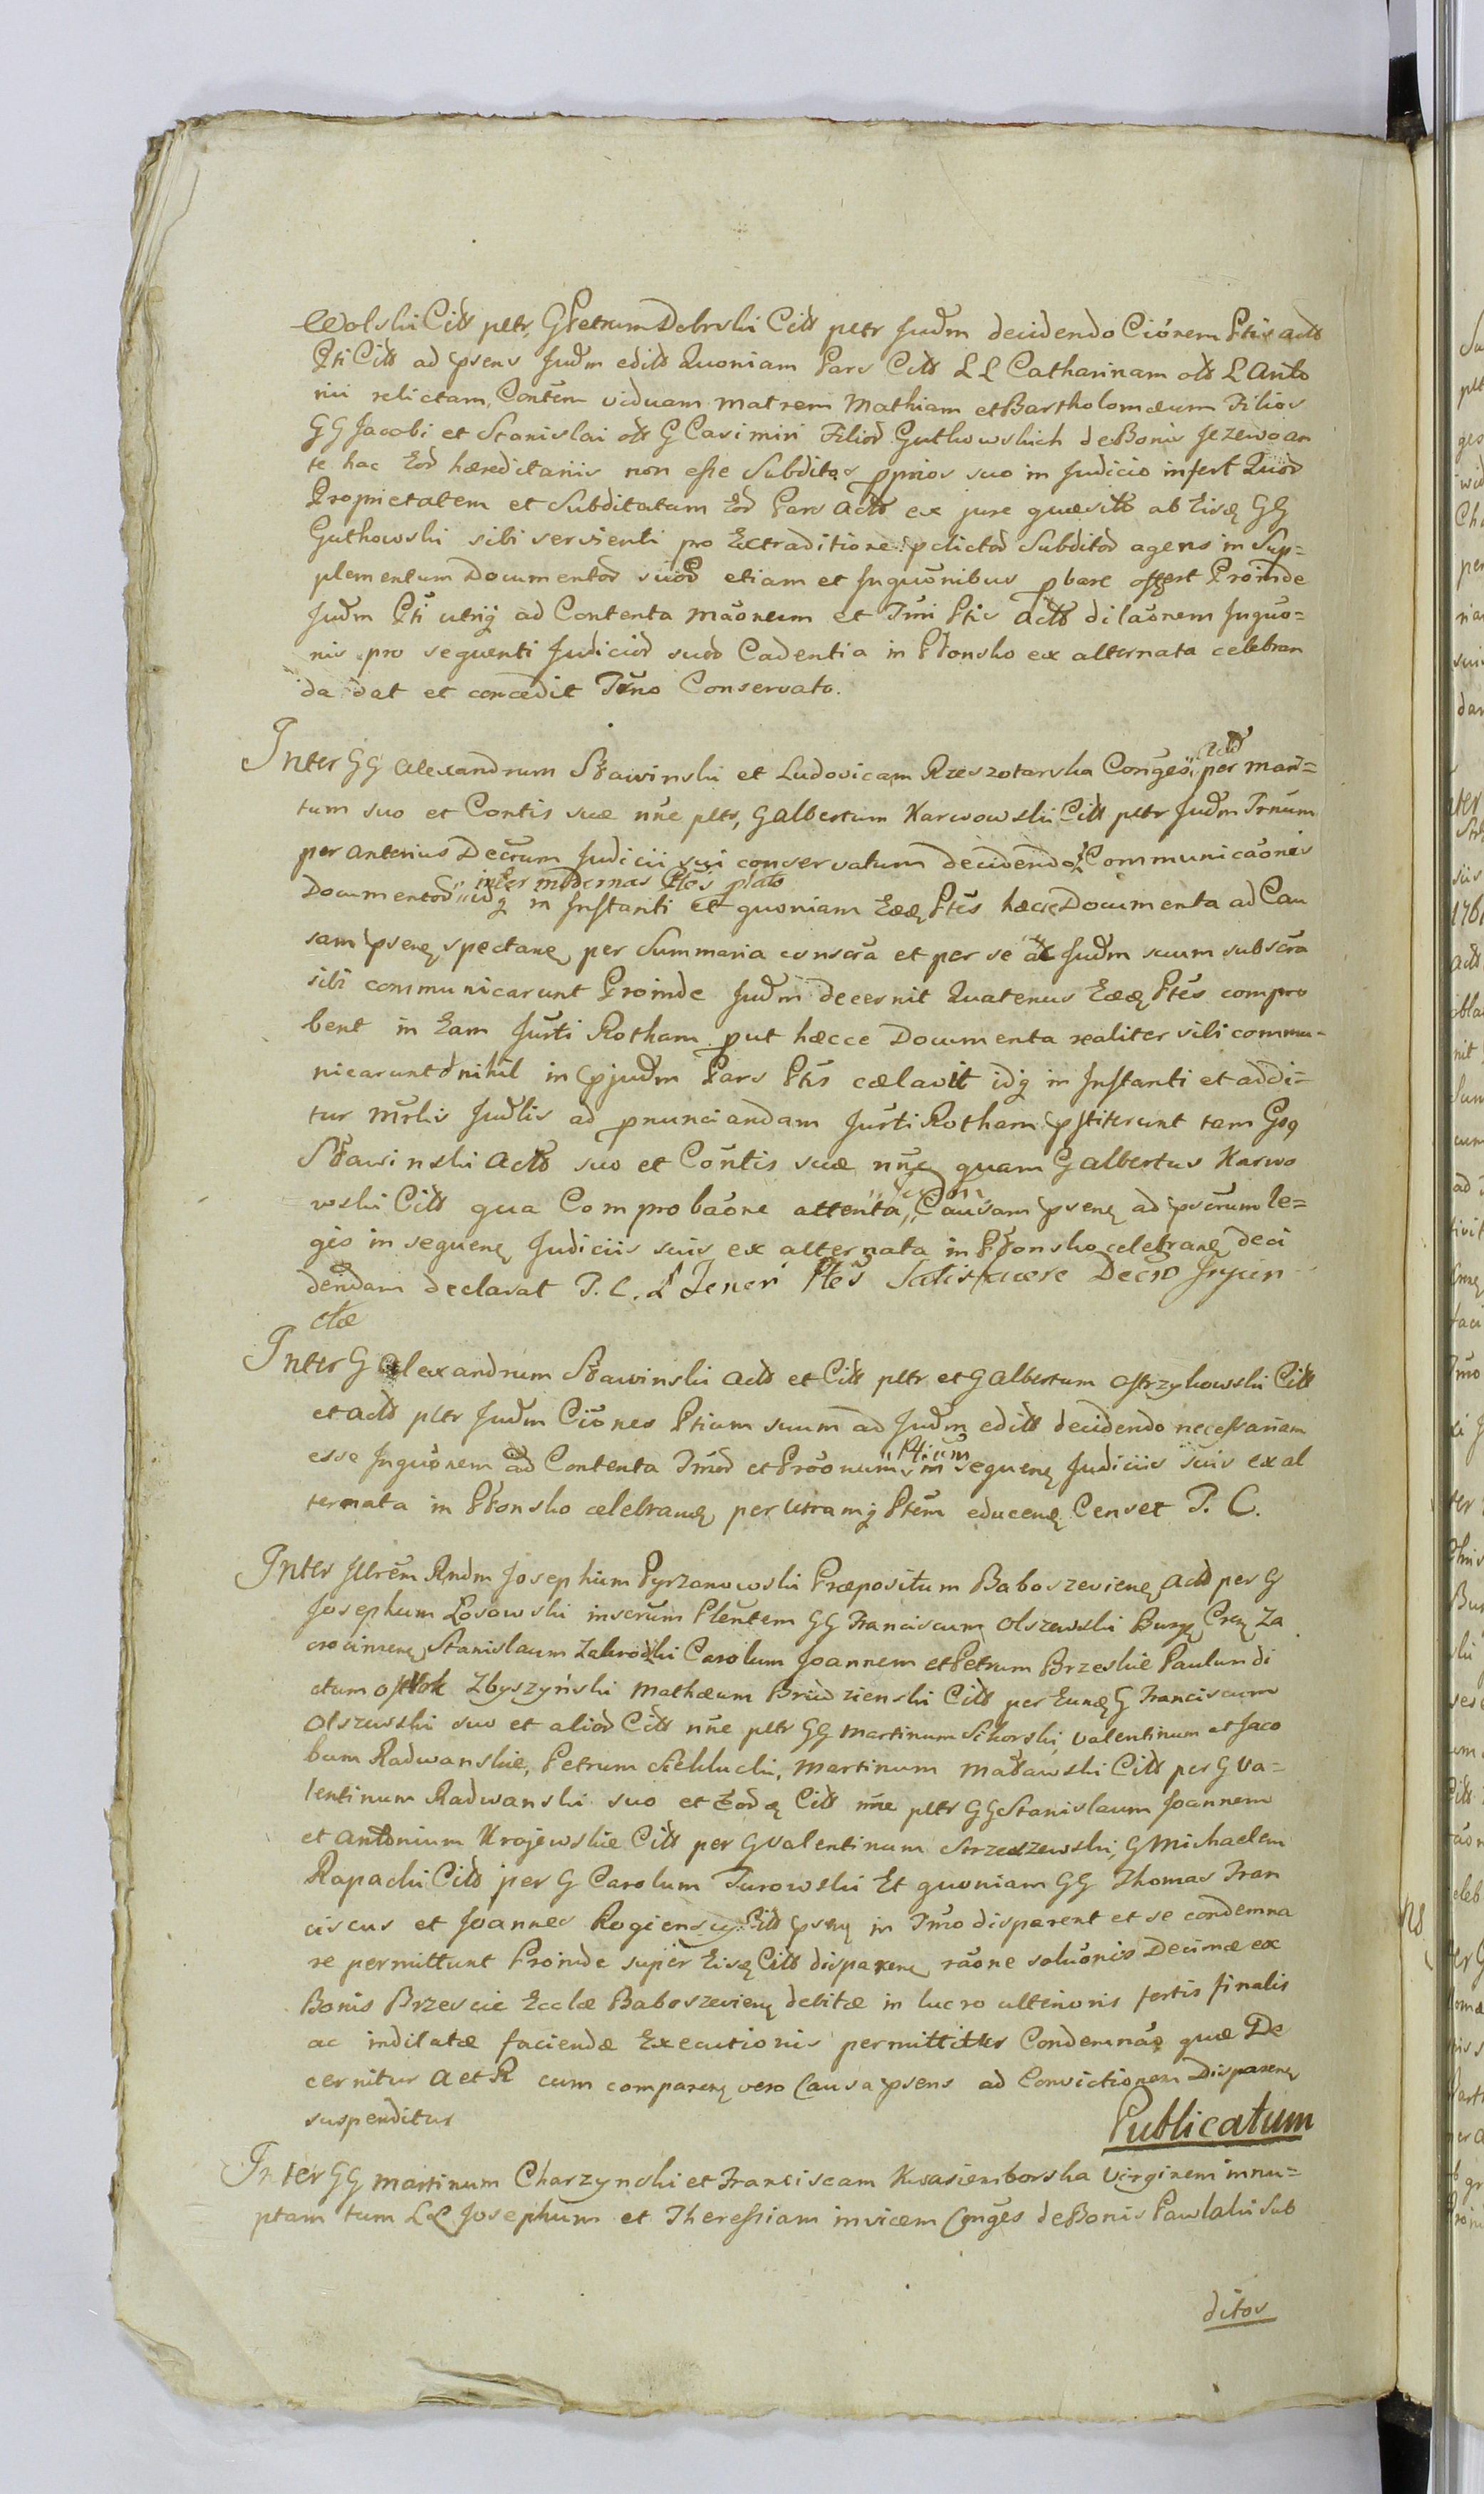 Wolski Citt pltr, G Petrum Dobrski Citt pltr Judm decidendo Ciónem Ptis actt
Pti Citt ad psens Judm editt Quoniam Pars Citt LL Catharinam ott L Anto
nii relictam Contem viduam matrem Mathiam et Bartholomæum Filios
GG Jacobi et Stanislai ott G Casimiri Filiod Gutkowskich de Bonis Jezewo an
te hac Eod hæreditariis non esse Subditos pprios suo in Judicio infert Quod
Proprietatem et Subditatum Eod Pars Actt ex jure quæsitt ab Eisq GG
Gutkowski sibi servienti pro Extraditione pdictod Subditod agens in Sup=
plementum Documentod suod etiam et Inquónibus pbare offert Proinde
Judm Pti utriq ad Contenta Maóneum et Tmi Ptis Actt dilaónem Inquó=
nis pro sequenti Judiciod suod Cadentia in Płonsko ex alternata celebran
da dat et concedit Tmno Conservato.
Inter GG Alexandrum Sławinski et Ludovicam Rzeszotarska Conges Actt per mari=
tum suo et Contis suæ nne pltr, G Albertum Karwowski Citt pltr Judm Trnum
per anterius Decrum Judicii sui conservatum decidendo Communicaónes
Documentod inter modernas Ptes plato idq in Instanti Et quoniam Eæq Ptes hæcce Documenta ad Cau
sam psenq spectanq per Summaria conscra et per se ac Judm suum subscra
sibi communicarunt Proinde Judm decernit Quatenus Eæq Ptes compro
bent in Eam Jurti Rotham put hæcce Documenta realiter sibi commu-
nicarunt & nihil in pjudm Pars Ptis cælavit idq in Instanti et addi=
tur Mrlis Judlis ad pnunciandam Jurti Rotham pstiterunt tam Gsq
Sławinski Actt suo et Contis suæ nne quam G Albertus Karwo
wski Citt qua Comprobaóne attenta, Judm Causam psenq ad pscrum le=
gis in sequenq Judiciis suis ex alternata in Płonsko celebranq deci
dendam declarat T. C. & Teneri Ptes Satisfacere Decro Injun
ctæ
Inter G Alexandrum Sławinski Actt et Citt pltr et G Albertum Ostrzykowski Citt
et Actt pltr Judm Ciónes Ptium suum ad Judm editt decidendo necessariam
esse Inquónem ad Contenta Tmod et Proonum Ptium in sequenq Judiciis suis ex al
ternata in Płonsko celebranq per Utramq Ptem educenq Censet T. C.
Inter Illrem Rndm Josephum Pyrzanowski Præpositum Baboszevienq Actt per G
Josephum Losowski inscrum Plentem GG Franciscum Olszewski Burg Crq Za
crocimenq Stanislaum Zakrocki Carolum Joannem et Petrum Brzeskie Paulum di
ctum Osłtok Zbyszyński Mathæum Brudzienski Citt per Eunq G Franciscum
Olszewski suo et aliod Citt nne pltr GG Martinum Sikorski, Valentinum et Jaco
bum Radwanskie, Petrum Siekłucki, Martinum Maławski Citt per G Va=
lentinum Radwanski suo et Eodq Citt nne pltr GG Stanislaum Joannem
et Antonium Krajewskie Citt per G Valentinum Strzeszewski, G Michaelem
Rapacki Citt per G Carolum Turowski Et quoniam GG Thomas Fran
ciscus et Joannes Rogienscy Citt psenq in Tmo disparent et se condemna
re permittunt Proinde super Eisq Citt disparenq raóne soluónis Decimæ ex
Bonis Brzescie Ecclæ Baboszevienq debitæ in lucro ulterioris fortis finalis
ac indilatæ faciendæ Executionis permittitur Condemnao quæ De
cernitur A et R cum comparenq vero Causa psens ad Convictionem Disparenq
suspenditur
Publicatum
Inter GG Martinum Charzynski et Franciscam Kwasiemborska Virginem innu=
ptam tum LL Josephum et Theressiam invicem Conges de Bonis Pawlaki Sub
ditos